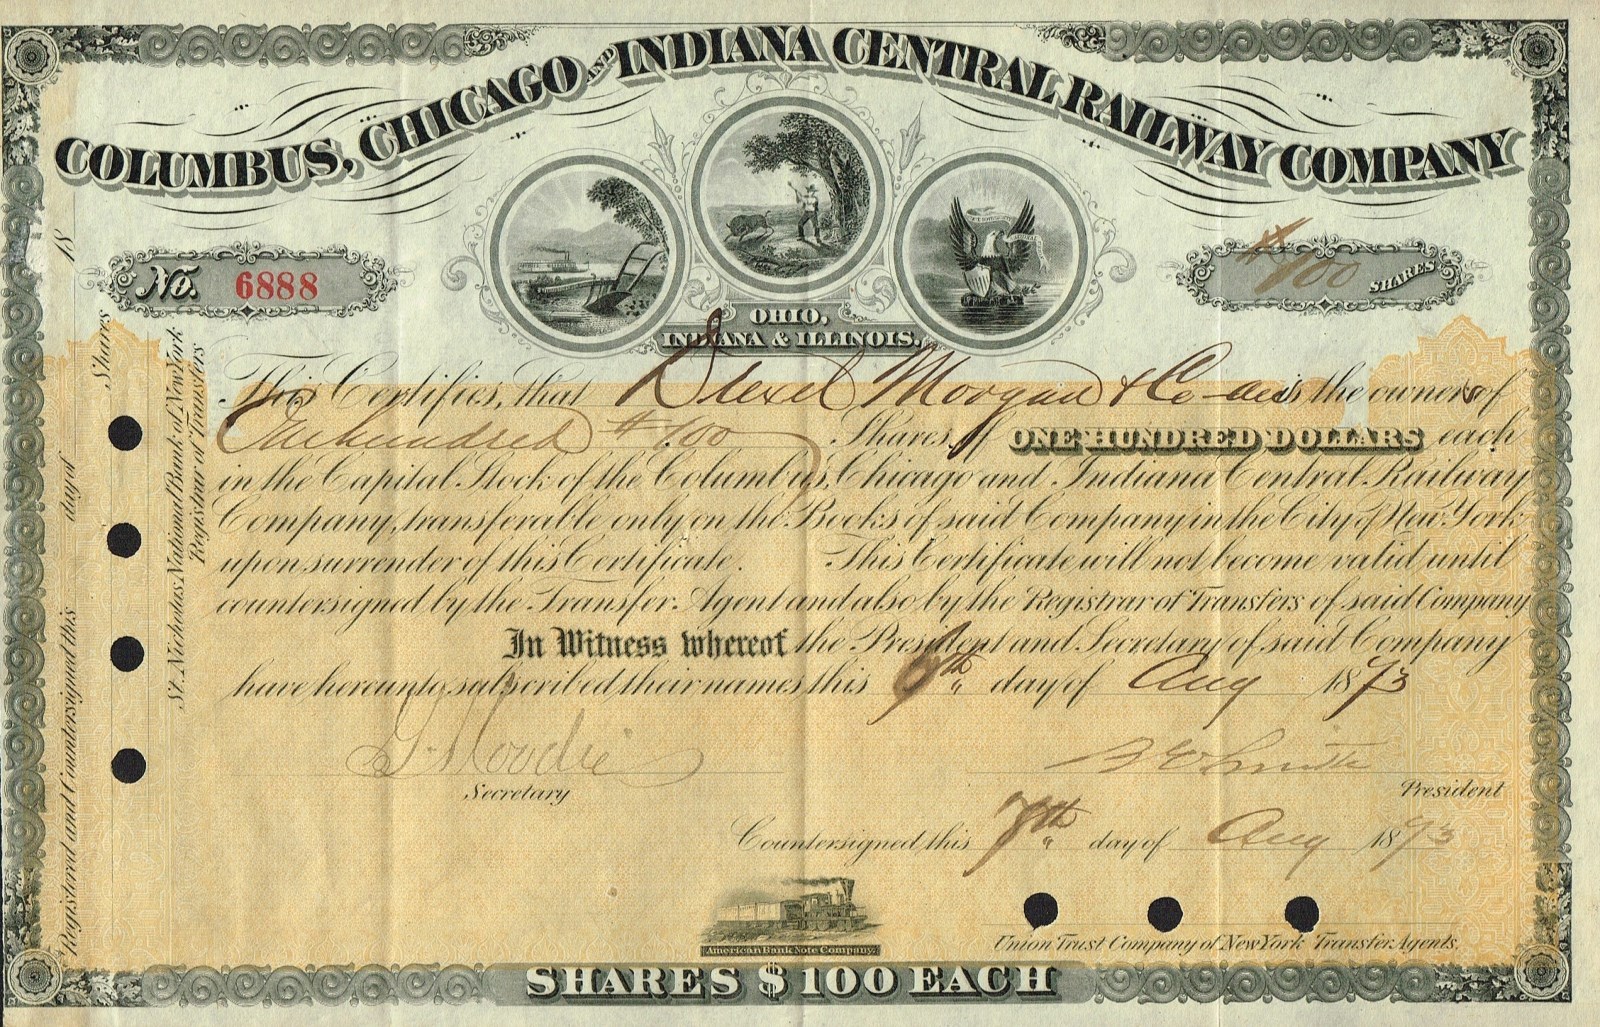 COLUMBUS, CHICAGO AND INDIANA CENTRAL RAILWAY COMPANY
No. 6888
#100 SHARES
OHIO,
INDIANA & ILLINOIS.
This Certifies, that Drexel Morgan & Co are is the owners of
One hundred #100 Shares of ONE HUNDRED DOLLARS each
in the Capital Stock of the Columbus, Chicago and Indiana Central Railway
Company, transferable only on the Books of said Company in the City of New York
upon surrender of this Certificate. This Certificate will not become valid until
countersigned by the Transfer Agent and also by the Registrar of Transfers of said Company
In Witness whereof the President and Secretary of said Company
have hereunto subscribed their names this day of Aug 1873
G. Moodie
Secretary
B E Smith
President
Countersigned this 7th day of Aug 1873
Union Trust Company of New York Transfer Agents.
American Bank Note Company.
SHARES $100 EACH
Registered and Countersigned this day of 18
St. Nicholas National Bank of New York
Registrar of Transfers
Shares